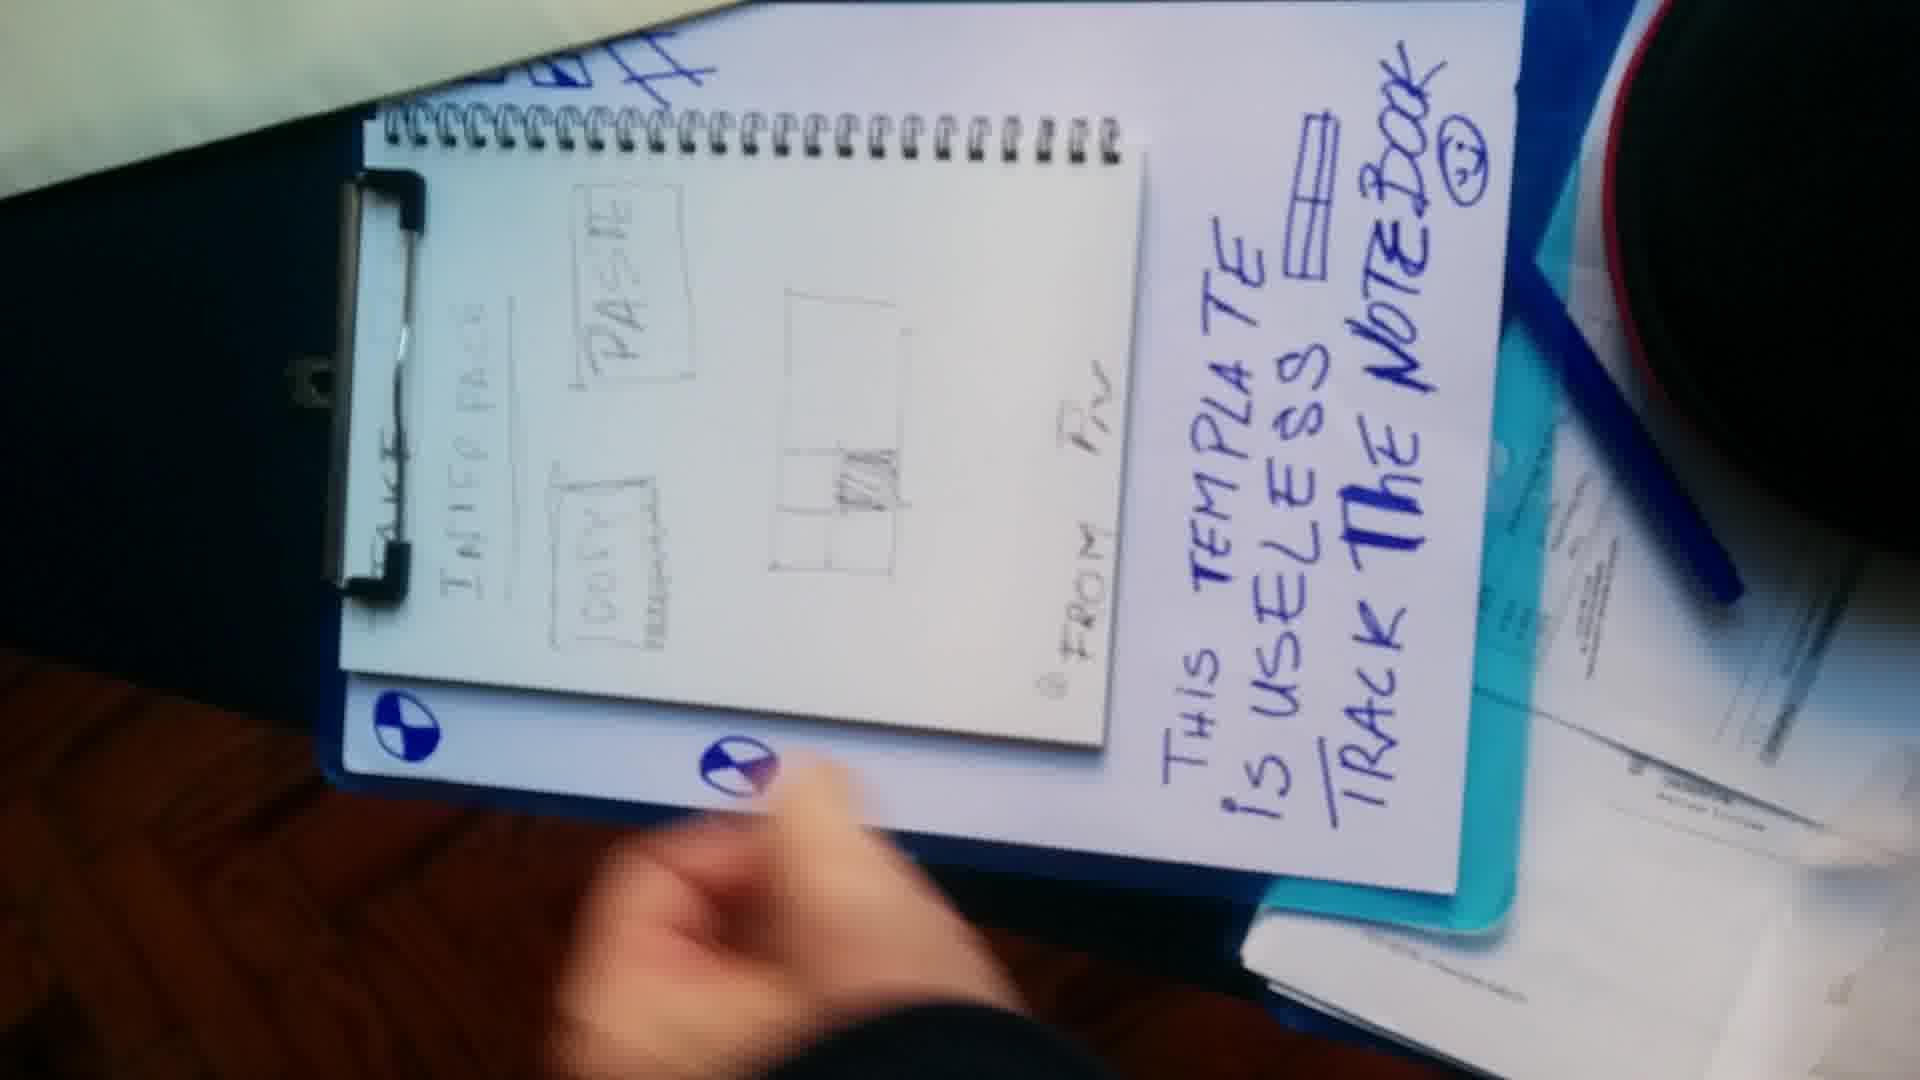 FAKE
INTERFACE
COPY
PASTE
FROM
THIS TEMPLATE
IS USELESS
TRACK THE NOTEBOOK